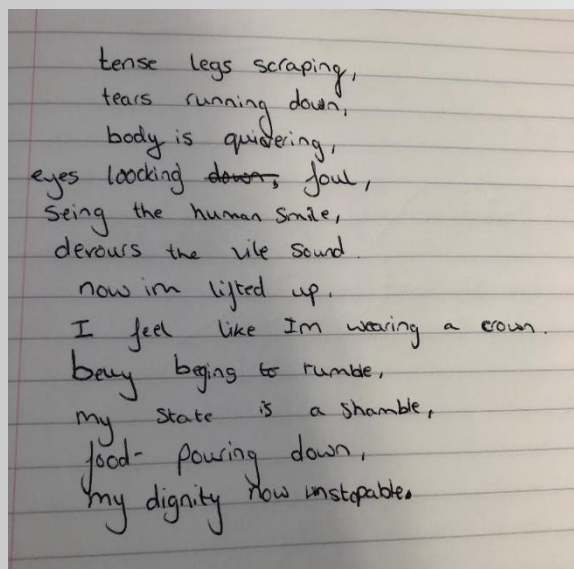 tense legs scraping,
tears running down,
body is quivering,
eyes loocking down, foul,
Seing the human smile,
devours the vile sound.
now im lifted up.
I feel like Im wearing a crown.
belly begins to rumble,
my state is a shamble,
food- pouring down,
my dignity now unstopable.